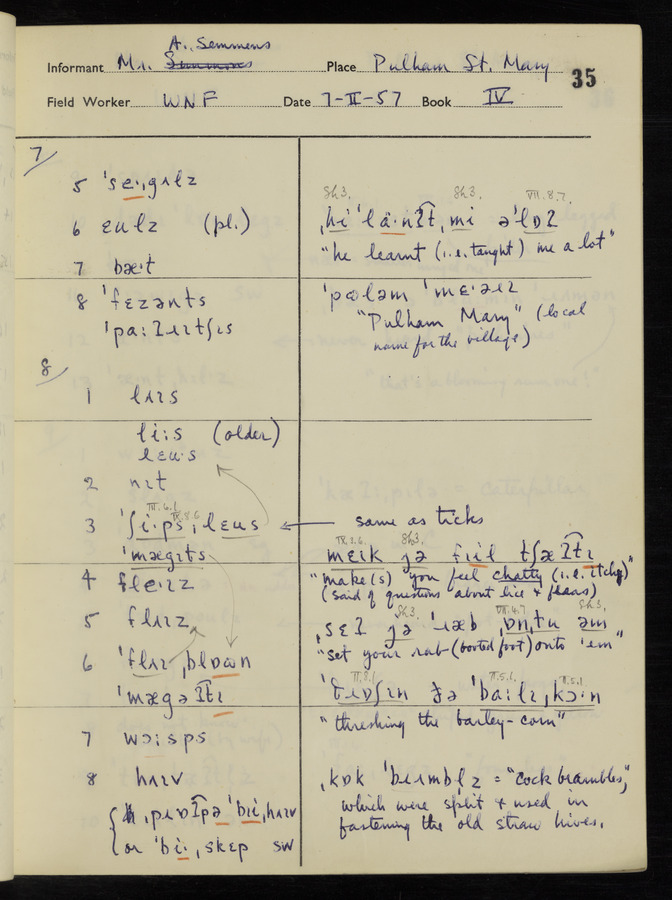 A. Semmens
Informant Mr. Simmons Place Pulham St. Mary 35
Field Worker WNF Date 7-II-57 Book IV
7/
5 ˈseˑɪgʌlz
6 ɛʊlz (pl.)
7 bæˑt
8 ˈfɛzənts
ˈpaːʔɹɪtʃɪs
8/
1 lʌɪs
liːs (older)
lɛʊˑs
2 nɪt
III.6.1 IV.8.6
3 ˈʃiˑpsˌlɛʊs
ˈmægɪts
4 fleˑɪz
5 flɪɪz
6 ˈflɪɪˌbloʊn
ˈmægəʔtɪ
7 wɔːsps
8 hʌɪv
ˈbɪiˌhʌɪv
or ˈbɪiˑˌskɛp SW
Sh3. Sh3. VII.8.7.
ˌhi ˈläˑnʔt ˌmi əˈlɒʔ
"he learnt (i.e. taught) me a lot"
ˈpʊləm ˈmɛˑəɹɪ
"Pulham Mary" (local
name for the village)
← same as ticks
IX.3.6. Sh3.
mɛɪk jə fɪil tʃæʔtɪ
"make(s) you feel chatty (i.e. itchy)"
(said of questions about lice & fleas)
Sh3. VII.4.7. Sh3.
ˌsɛʔ jə ˈɹæb ˌɒnˌtu əm
"set your rab (booted foot) onto 'em"
II.8.1 II.5.1. II.5.1
ðə ˈbaːlɪˌkɔːn
"threshing the barley-corn"
ˌkɒk ˈbɹʌmblz = "cock brambles",
which were split & used in
fastening the old straw hives.